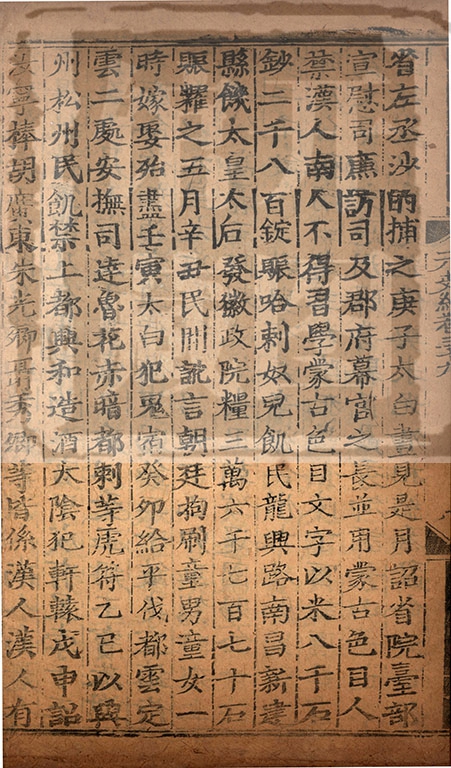 省左丞沙的捕之庚子太白晝見是月詔省院臺部
宣慰司廉訪司及郡府幕官之長並用蒙古色目人
禁漢人南人不得習學蒙古色目文字以米八千石
鈔二千八百錠賑哈剌奴兒飢民龍興路南昌新建
縣饑太皇太后發徽政院糧三萬六千七百七十石
賑糶之五月辛丑民間訛言朝廷拘刷童男童女一
時嫁娶殆盡壬寅太白犯鬼宿癸卯給平伐都雲定
雲二處安撫司達魯花赤暗都剌等虎符乙巳以興
州松州民飢禁上都興和造酒太陰犯軒轅戊申詔
汝寧棒胡廣東朱光卿聶秀卿等皆係漢人漢人有